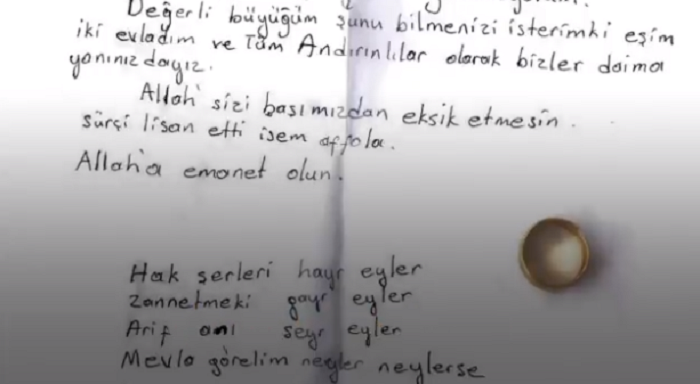 Değerli büyüğüm şunu bilmenizi isterimki eşim
iki evladım ve Tüm Andırınlılar olarak bizler daima
yanınızdayız.
Allah' sizi başımızdan eksik etmesin.
sürçi lisan etti isem affola.
Allah'a emanet olun.
Hak şerleri hayr eyler
Zannetmeki gayr eyler
Arif anı seyr eyler
Mevla görelim neyler neylerse